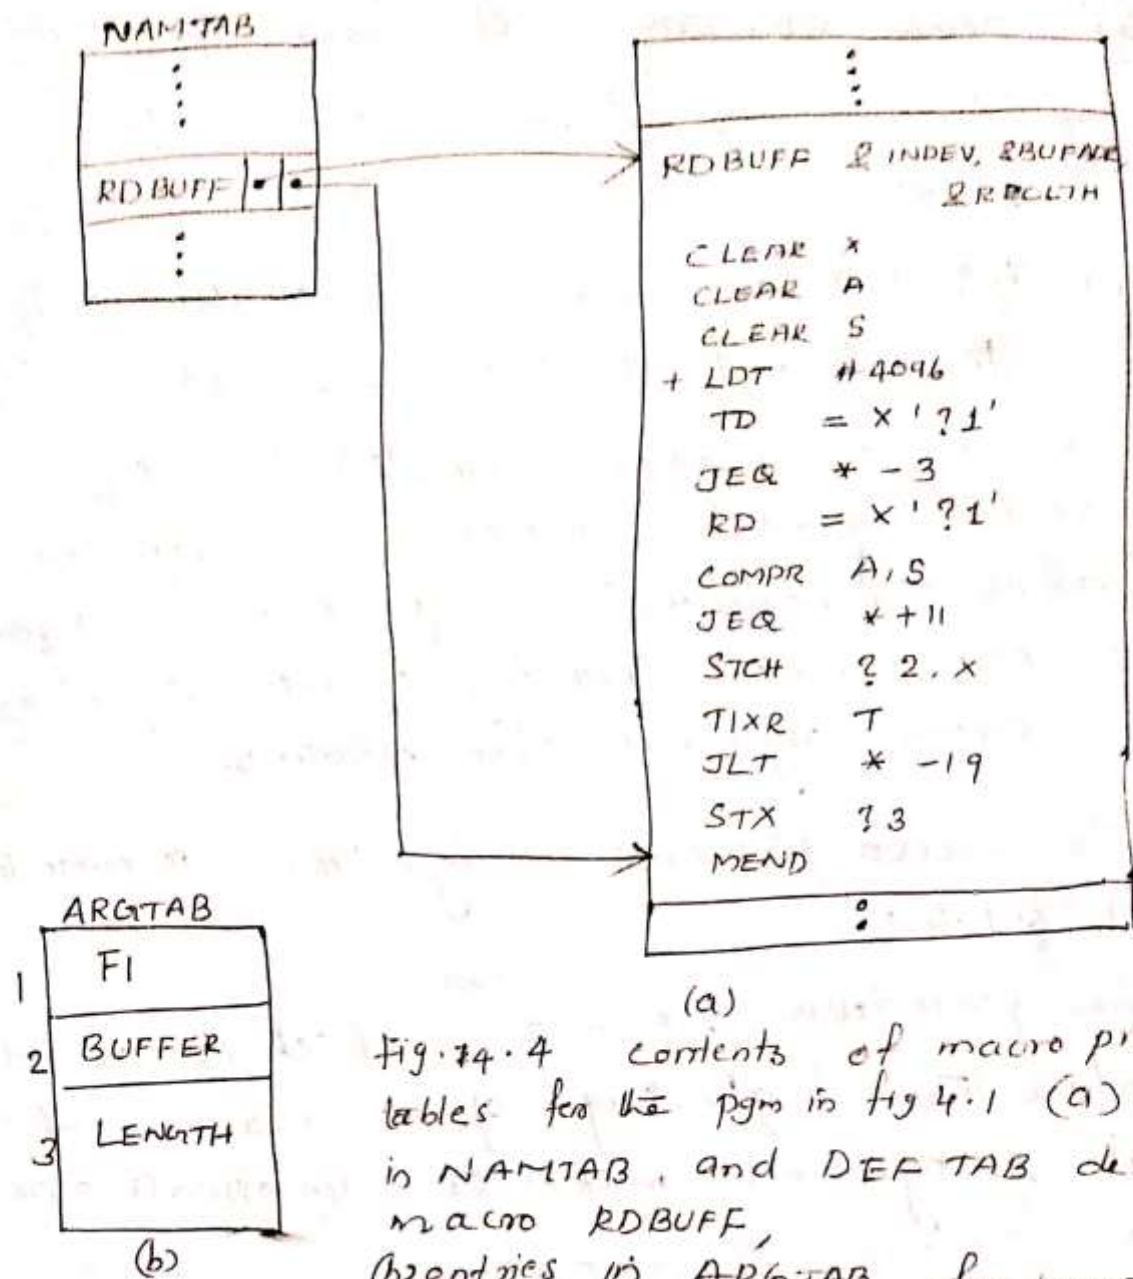 NAMTAB
RDBUFF
RDBUFF &INDEV, &BUFADR,
&RECLTH
CLEAR X
CLEAR A
CLEAR S
+ LDT #4096
TD = X '?1'
JEQ * - 3
RD = X '?1'
COMPR A,S
JEQ * +11
STCH ? 2, X
TIXR T
JLT * -19
STX ?3
MEND
ARGTAB
1 F1
2 BUFFER
3 LENGTH
(a)
Fig. 4.4 contents of macro
tables for the pgm in fig 4.1 (a)
in NAMTAB, and DEFTAB
macro RDBUFF,
(b) entries in ARGTAB
(b)